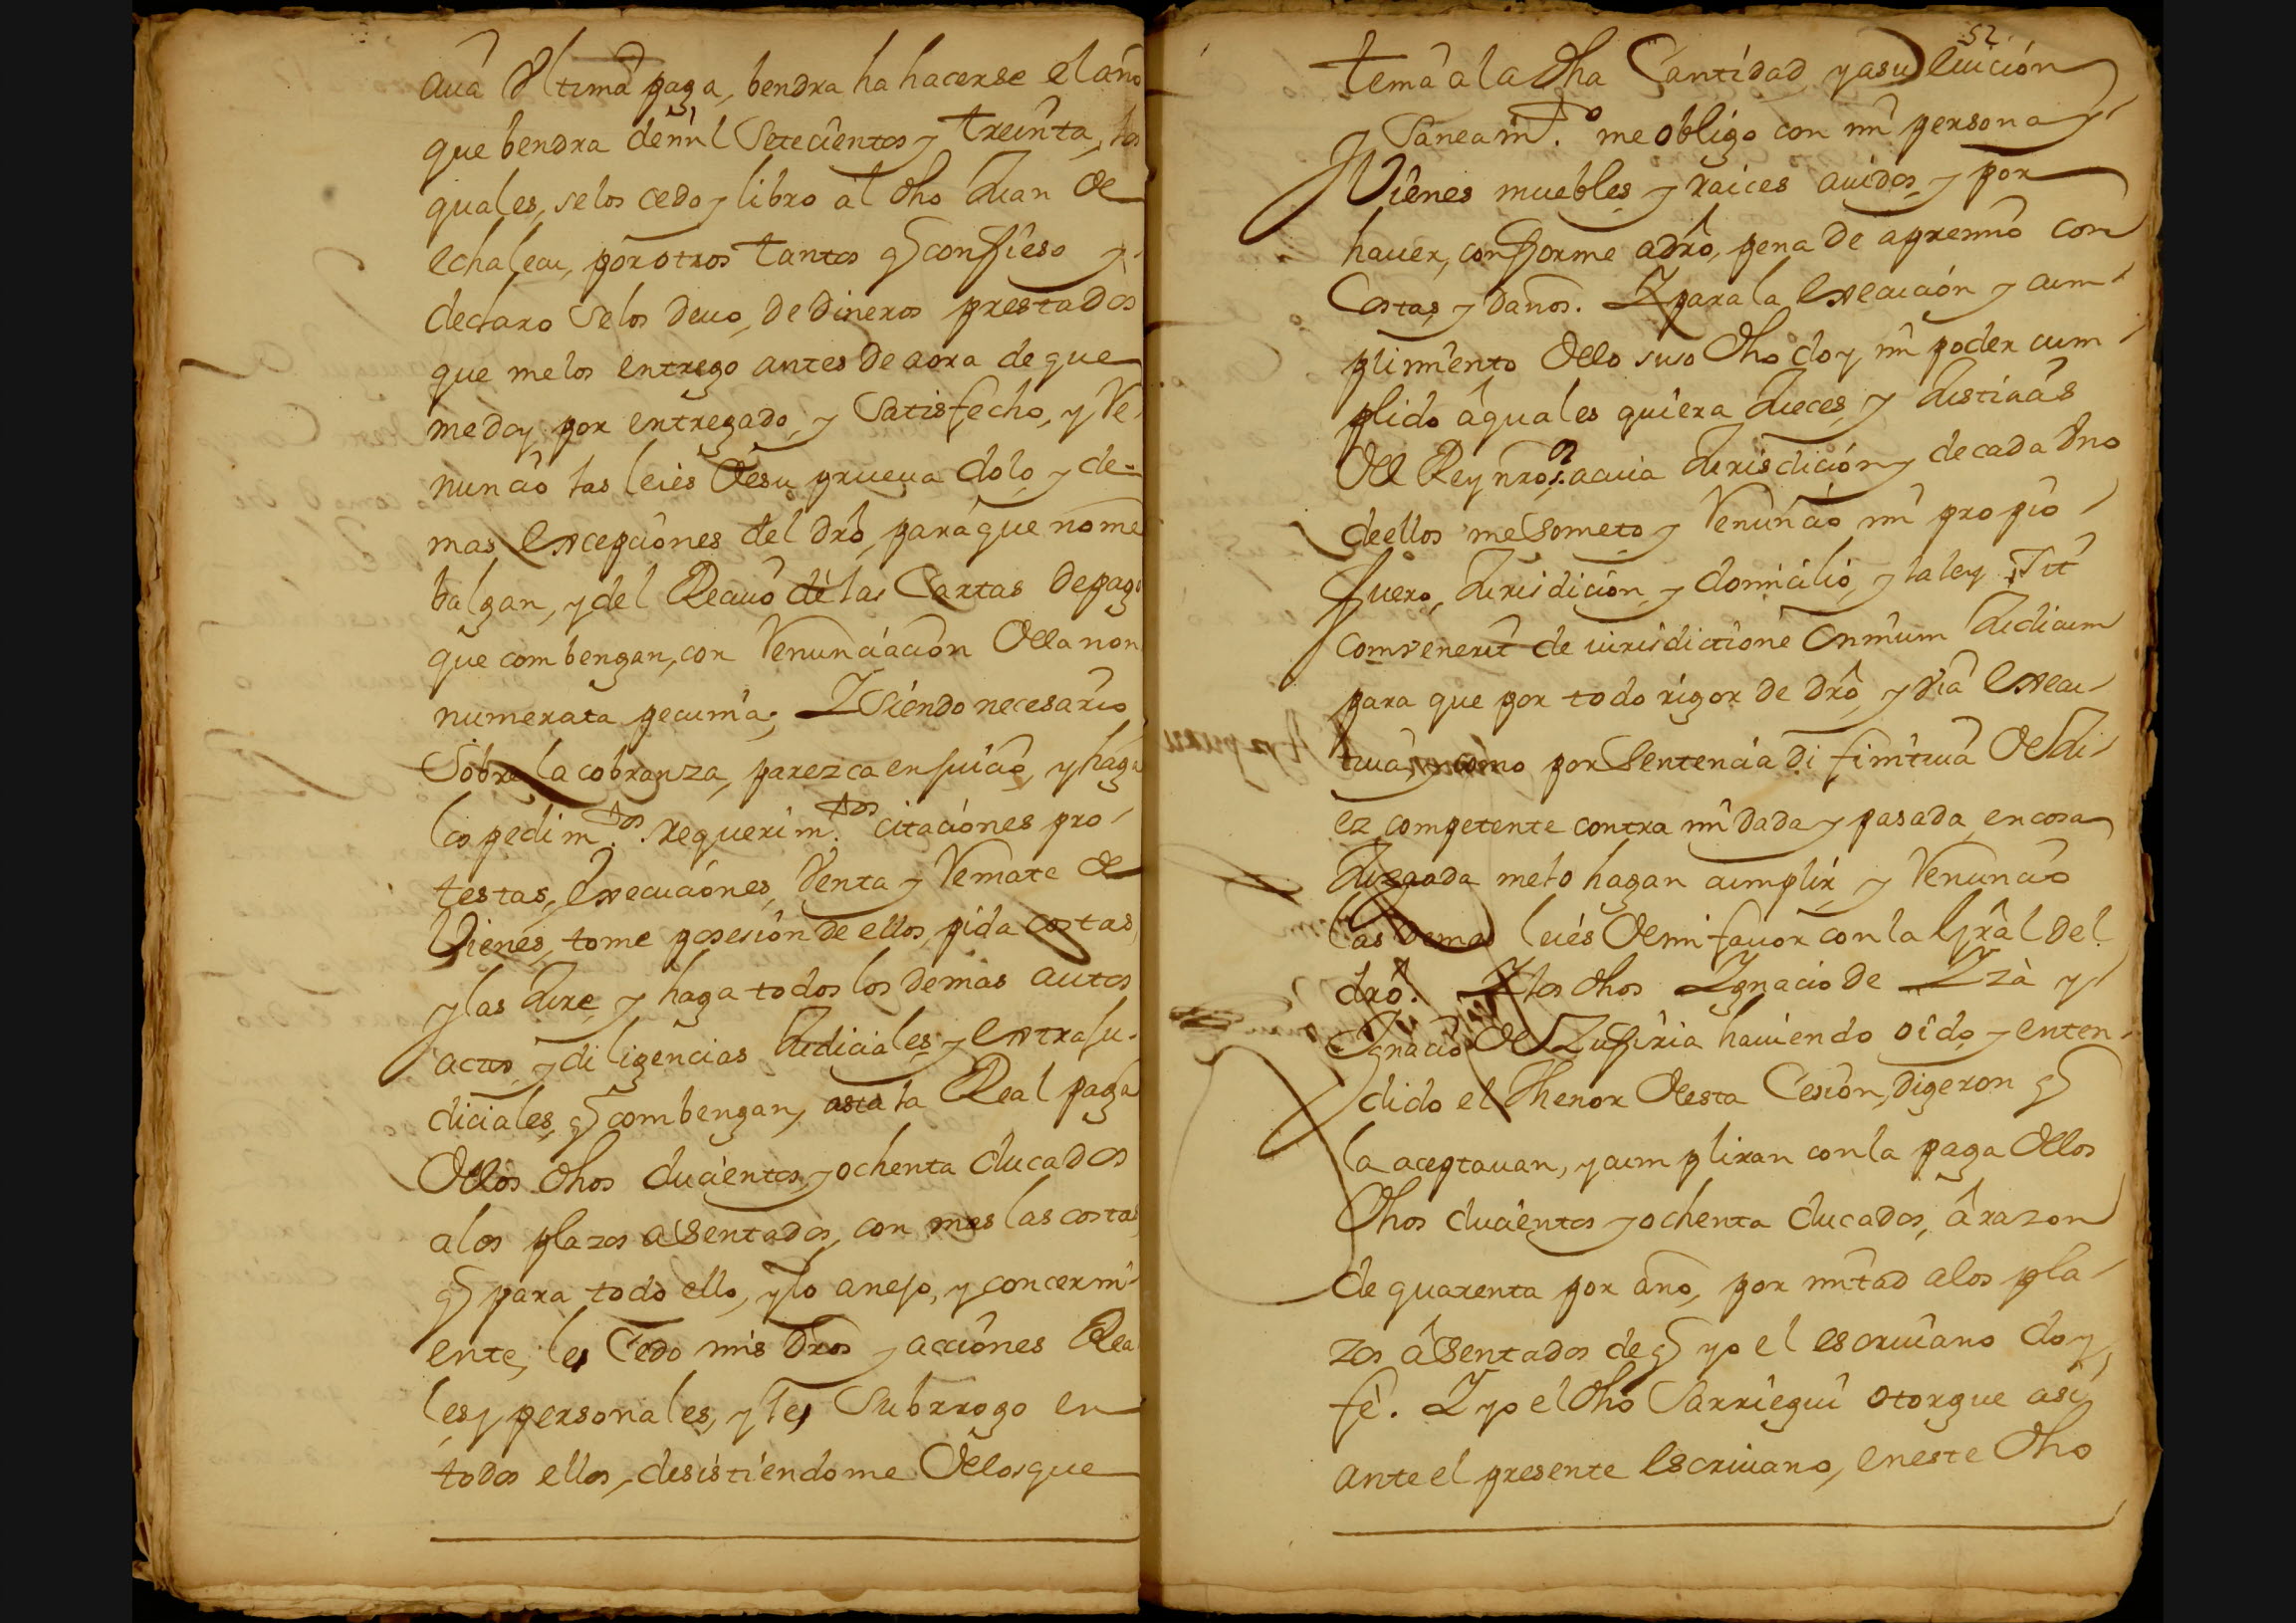 cuia Vltima paga, bendra ha hacerse el año
que bendra de mil Setecientos y treinta, los
quales, se los cedo y libro al dho Juan de
echaleau, por otros tantos q confieso y
declaro Se los deuo, de dineros prestados
que me los entrego antes de aora de que
me doy por entregado, y Satisfecho, y Re
nuncio las leies de su prueua dolo y de-
mas excepciones del dro, para que no me
balgan, y del Reciuo de las Cartas de pago
que combengan, con Renunciacion de la non
numerata pecunia; Y Siendo necesario
Sobre la cobranza, parezca en juicio, y haga
los pedim.tos requerim.tos citaciones pro-
testas, execuciones, Venta y Remate de
Vienes, tome posesion de ellos, pida costas,
y las Jure, y haga todos los demas autos
actos, y diligencias Judiciales y extraju-
diciales, q combengan, asta la Real paga
de los dhos ducientos y ochenta ducados
a los plazos asentados, con mas las costas,
q para todo ello, y lo anejo, y concerni-
ente, le, Cedo mis dros y acciones Rea
les y personales, y le, Subrrogo en
todos ellos, desistiendome de los que
52
tenia a la dha Cantidad, y a su euicion
y Saneam.to me obligo con mi persona y
Vienes muebles y raices auidos y por
hauer, conforme a dro, pena de apremio con
Costas, y daños. Y para la execucion y cum-
plimiento de lo suso dho doy mi poder cum-
plido a quales quiera Jueces, y Justicias
del Rey nro s.r a cuia Jurisdicion y de cada Vno
de ellos me Someto y Renuncio mi propio
fuero, Jurisdicion, y domicilio, y la ley Sit
convenerit de iurisdictione Omnium Judicum
para que por todo rigor de dro, y via execu-
tiua, y como por Sentencia difinitiua de Ju-
ez competente contra mi dada y pasada en cosa
Juzgada me lo hagan cumplir, y Renuncio
las demas leies de mi fauor con la Gral del
dro. Y los dhos Ygnacio de Yza y
Ignacio de Zufiria hauiendo oido y enten-
dido el thenor de esta Cesion, digeron q
la aceptauan, y cumpliran con la paga de los
dhos ducientos y ochenta ducados, a razon
de quarenta por año, por mitad a los pla-
zos asentados de q yo el escriuano doy
fe. Y yo el dho Sarriegui otorgue asi
ante el presente escriuano, en este dho